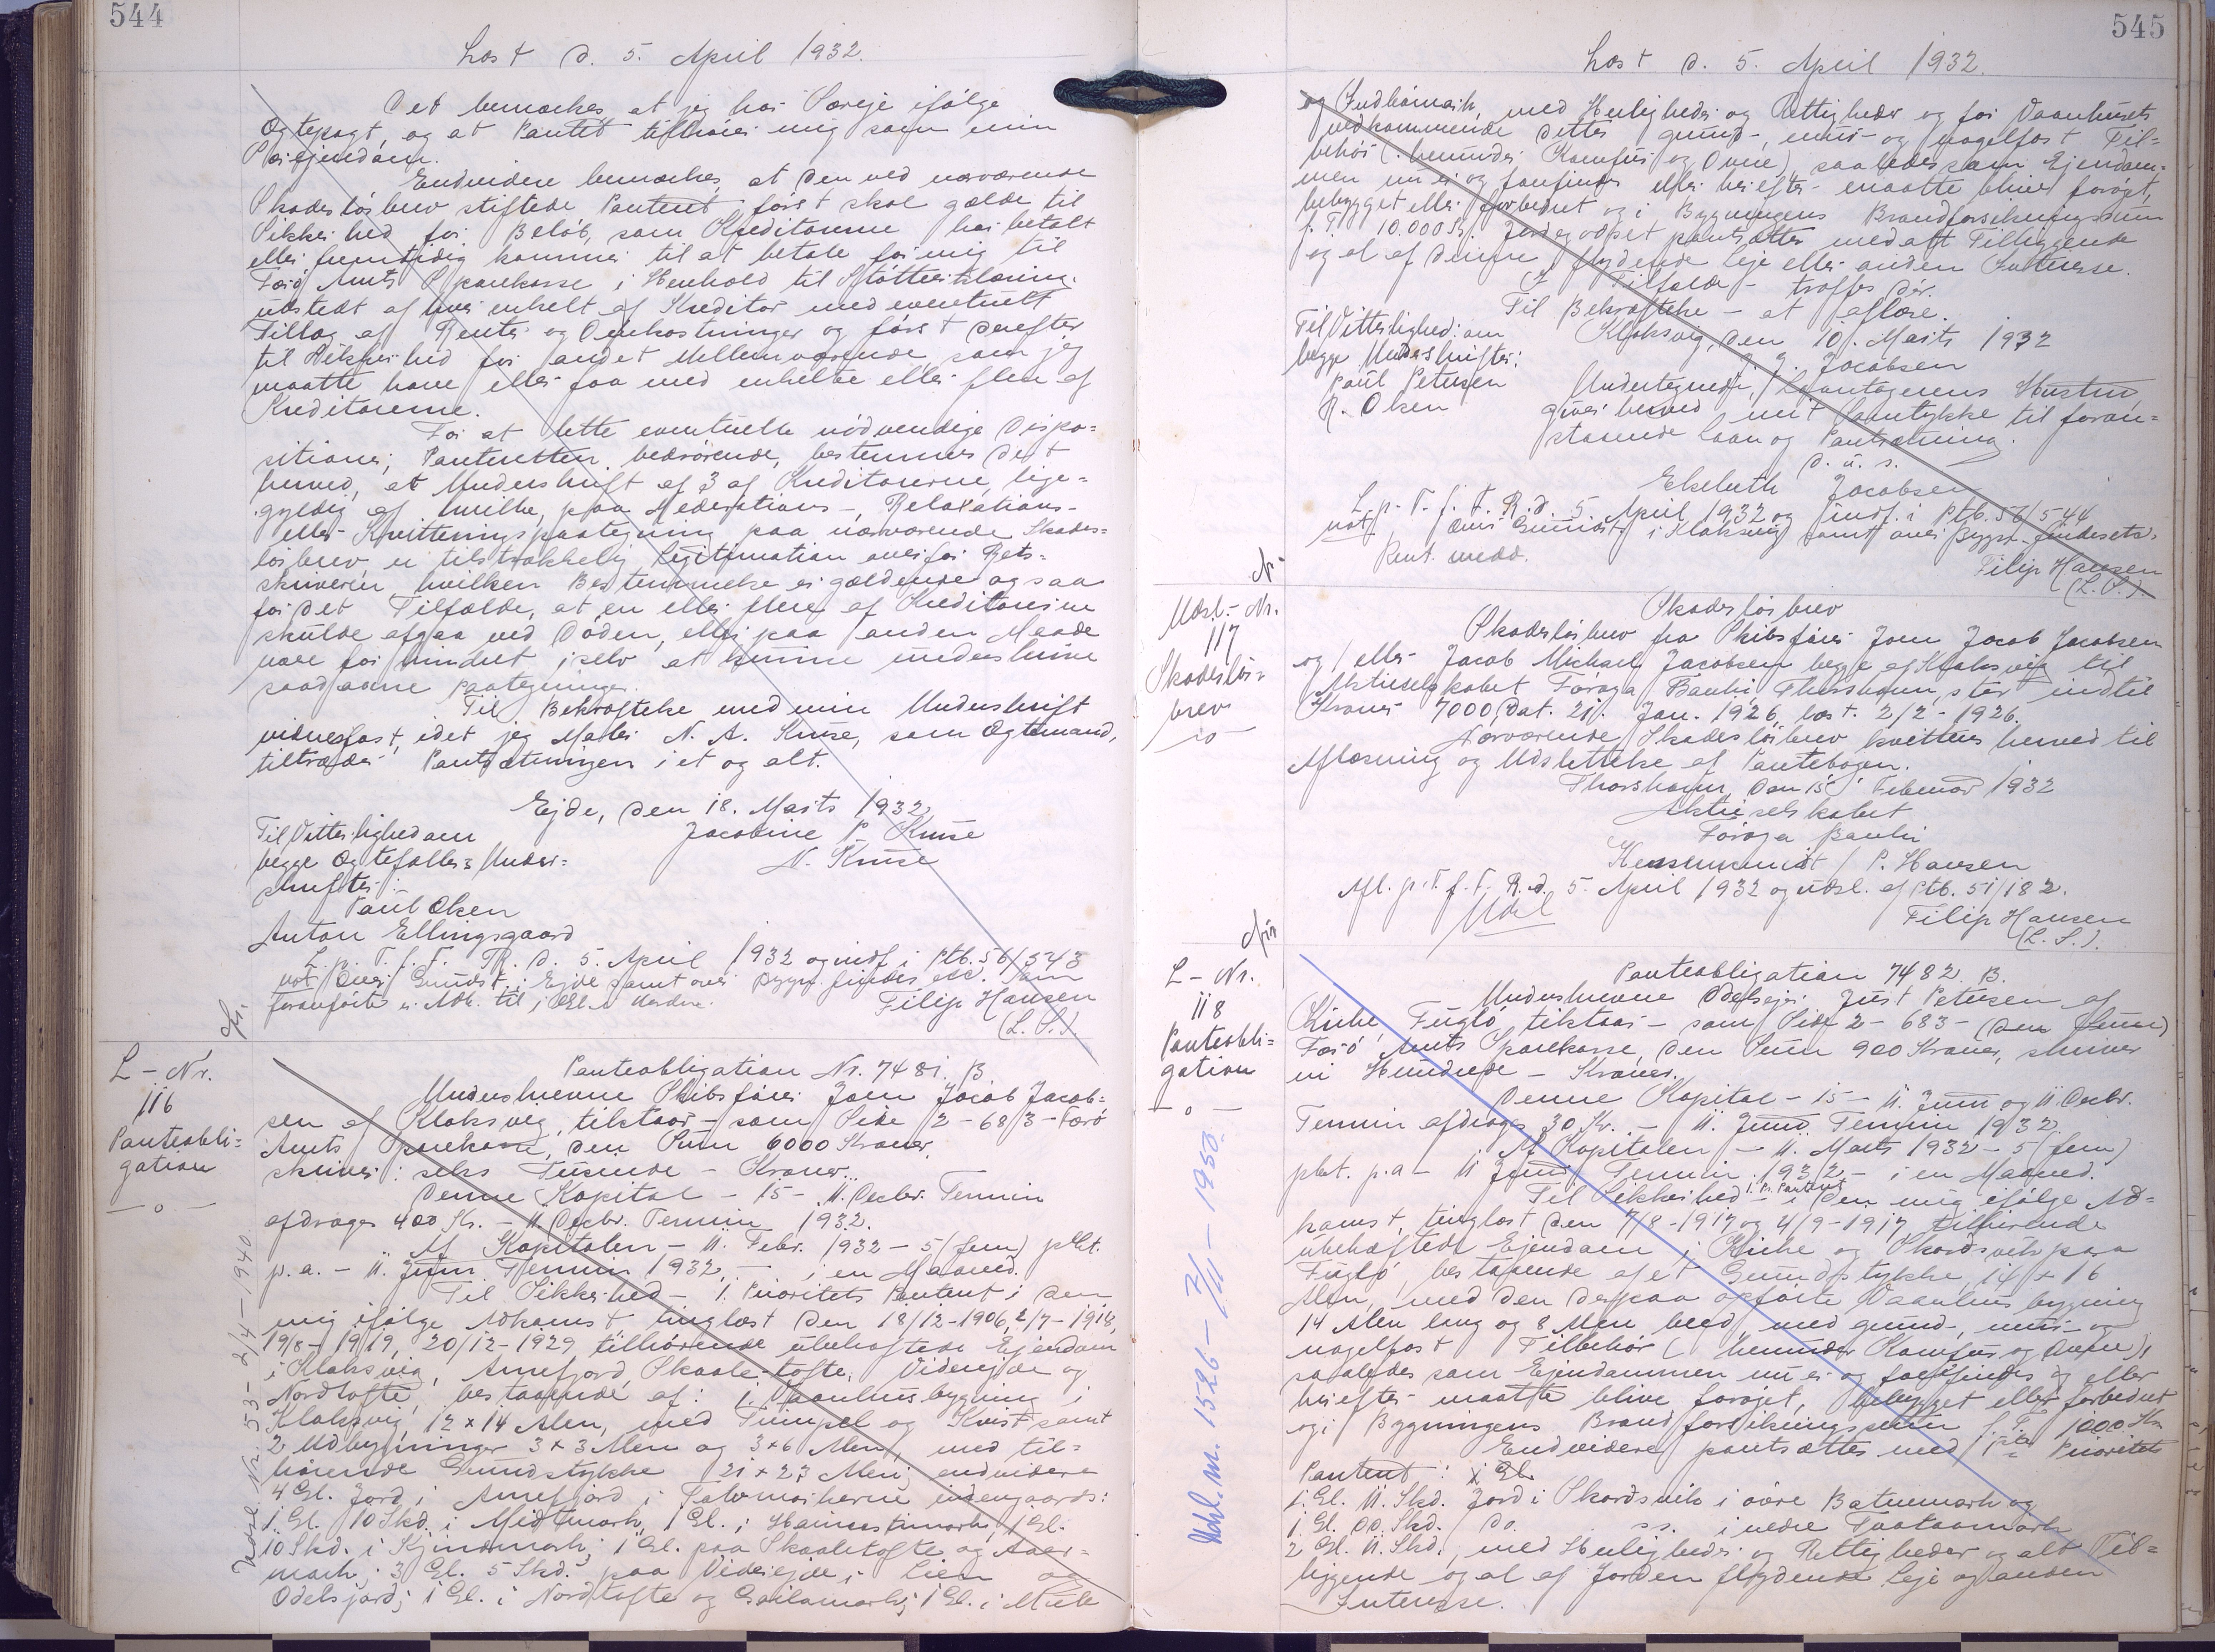 544
Læst d. 5. April 1932.
Det bemærkes, at jeg har Særeje ifølge
Ægtepagt, og at Pantet tilhører mig som min
Særejendom.
Endvidere bemærkes, at den ved nærværende
Skadesløsbrev stiftede Panteret først skal gælde til
Sikkerhed for Beløb, som Kreditorerne har betalt
eller fremtidig kommer til at betale for mig til
Færø Amts Sparekasse i Henhold til Støtteerklæring
udstedt af hver enkelt af Kreditor med eventuelt
Tillæg af Renter og Omkostninger og først derefter
til Sikkerhed for andet Mellemværende, som jeg
maatte have eller faa med enkelte eller flere af
Kreditorerne.
For at lette eventuelle nødvendige Dispo=
sitioner, Panteretten vedrørende, bestemmes det
herved, at Underskrift af 3 af Kreditorerne, lige=
gyldig af hvilke, paa Moderations-, Relaxations-
eller Kvitteringspaategning paa nærværende Skades=
løsbrev er tilstrækkelig Legitimation overfor Rets=
skriveren hvilken Bestemmelse er gældende ogsaa
for det Tilfælde, at en eller flere af Kreditorerne
skulde afgaa ved Døden, eller paa anden Maade
være forhindret i selv at kunne underskrive
saadanne Paategninger.
Til Bekræftelse med min Underskrift
vidnefast, idet jeg Maler N. A. Kruse, som Ægtemand,
tiltræder Pantsætningen i et og alt.
Ejde, den 18. Marts 1932.
Til Vitterlighed om
Jacobine P. Kruse
begge Ægtefællers Under=
N. Kruse
skrifter:
Paul Olsen
Anton Ellingsgaard
L. p. T. f. F. R. d. 5. April 1932 og indf. i Ptb. 56/543
not. over Grundst. i Ejde samt over Bygn. findes etc. som
foranførte er Adk. til
Filip Hansen
(L. S.)
L-Nr.
116
Panteobli=
gation
— o —
Panteobligation Nr. 7481. B
Underskrevne Skibsfører Joen Jacob Jacob=
sen af Klaksvig, tilstaar - som Side 2-683 - Færø
Amts Sparekasse, den Sum 6000 Kroner,
skriver: seks Tusinde - Kroner.
Denne Kapital - 15 - 11. Decbr. Termin
afdrages 400 Kr. - 11. Decbr. Termin 1932.
Af Kapitalen - 11. Febr. 1932 - 5 (fem) pCt.
p.a. - 11. Juni Termin 1932, - i en Maaned.
Til Sikkerhed - 1. Prioritets Panteret i den
mig ifølge Adkomst tinglæst den 18/12-1906, 2/7-1918,
19/8-1919, 20/12-1929 tilhørende ubehæftede Ejendom
i Klaksvig, Arnefjord, Skaaletofte, Viderejde og
Nordtofte, bestaaende af: 1. Vaanhusbygning i
Klaksvig, 12 x 14 Alen, med Grimpel og Kvist samt
2 Udbygninger 3 x 3 Alen og 3 x 6 Alen, med til=
hørende Grundstykke 21 x 27 Alen; endvidere
4 Gl. Jord i Arnefjord i Tatvmørkerne udengaards:
1 Gl. 10 Skd. i Midtmørk, 1 Gl. i 1 Gl.
10 Skd. i 1 Gl. paa Skaaletofte og Aaar=
mørk; 3 Gl. 5 Skd. paa Viderejde i Lien og
Odelsjord; 1 Gl. i Nordtofte og 1 Gl. i Mule
545
Læst d. 5. April 1932.
og Indhámark, med Herligheder og Rettigheder og for Vaanhusets
vedkommende dettes grund-, mur- og nagelfast Til=
behør (herunder Komfur og Ovne), saaledes som Ejendom=
men nu er og forefindes eller herefter maatte blive forøget,
bebygget eller forbedret og i Bygningens Brandforsikringssum
f. T. 10.000 Kr. Jordegodset pantsættes med alt Tilliggende
og al af denne flydende Leje eller anden Interesse.
I Tilfælde - træffes dér.
Til Bekræftelse - at aflæse.
Klaksvig, den 10. Marts 1932
Til Vitterlighed om
begge Underskrifter:
J. J. Jacobsen
Paul Petersen
R. Olsen
Undertegnede, Laantagerens Hustru,
giver herved mit Samtykke til foran=
staaende Laan og Pantsætning.
D. u. s.
Elsebeth Jacobsen
L. p. T. f. F. R. d. 5. April 1932 og indf. i Ptb. 56/544
not. over Grundst. i Klaksvig samt over Bygn. findes etc.
Rent. medd.
Filip Hansen
(L. S.).
Udsl.-Nr.
117
Skadesløs=
brev
— o —
Skadesløsbrev
Skadesløsbrev fra Skibsfører Joen Jacob Jacobsen
og/eller Jacob Michael Jacobsen begge af Klaksvig til
Aktieselskabet Føroya Banki Thorshavn, stor indtil
Kroner 7000, dat. 21. Jan. 1926, læst. 2/2-1926.
Nærværende Skadesløsbrev kvitteres herved til
Aflæsning og Udslettelse af Pantebogen.
Thorshavn, den 15. Februar 1932
Aktieselskabet
Føroya Banki
P. Hansen
Afl. p. T. f. F. R. d. 5. April 1932 og udsl. af Ptb. 51/182.
Udsl
Filip Hansen
(L. S.).
L-Nr.
118
Panteobli=
gation
— o —
Panteobligation 7482. B.
Underskrevne Odelsejer Just Petersen af
Kirke, Fuglø, tilstaar - som Side 2-683 - (den
Færø Amts Sparekasse, den Sum 900 Kroner, skriver
ni Hundrede - Kroner.
Denne Kapital - 15 - 11. Juni og 11. Decbr.
Termin afdrages 30 Kr. - 11. Juni Termin 1932.
Af Kapitalen - 11. Marts 1932 - 5 (fem)
pCt. p.a - 11 Juni Termin 1932 - i en Maaned.
Til Sikkerhed - 1. Pr. Panteret i den mig ifølge Ad=
komst, tinglæst den 7/8-1917 og 4/9-1917 tilhørende
ubehæftede Ejendom i Kirke og Skordsvik paa
Fuglø, bestaaende af et Grundstykke, 14 x 16
Alen, med den derpaa opførte Vaanhusbygning
14 Alen lang og 8 Alen bred, med grund-, mur- og
nagelfast Tilbehør (herunder Komfur og Ovne),
saaledes som Ejendommen nu er og forefindes og eller
herefter maatte blive forøget, bebygget eller forbedret
og i Bygningens Brandforsikringssum f. T. 1000 Kr.
Endvidere pantsættes med 1ste Prioritets
Panteret:
1. Gl. 11. Skd. Jord i Skordsvik i øvre Batnmørk og
1 Gl. do. Skd. do. ss. i nedre
2 Gl. 11. Skd., med Herligheder og Rettigheder og alt Til=
liggende og al af Jorden flydende Leje og anden
Interesse.
Udsl. Nr. 53 - 2/4-1940
Udsl. M. 1526 - 1950.